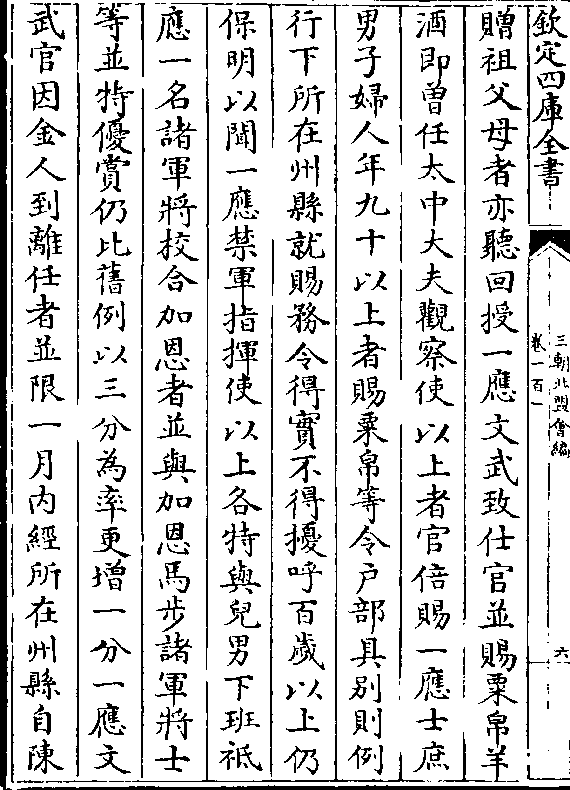 欽定四庫全書
三朝北盟會編
卷一百一
六
贈祖父母者亦聽回授一應文武致仕官並賜粟帛羊
酒即曽任太中大夫觀察使以上者官倍賜一應士庶
男子婦人年九十以上者賜粟帛等令户部具别則例
行下所在州縣就賜務令得實不得擾呼百歲以上仍
保明以聞一應禁軍指揮使以上各特與兒男下班祗
應一名諸軍將校合加恩者並與加恩馬步諸軍將士
等並特優賞仍比舊例以三分為率更增一分一應文
武官因金人到離任者並限一月内經所在州縣自陳